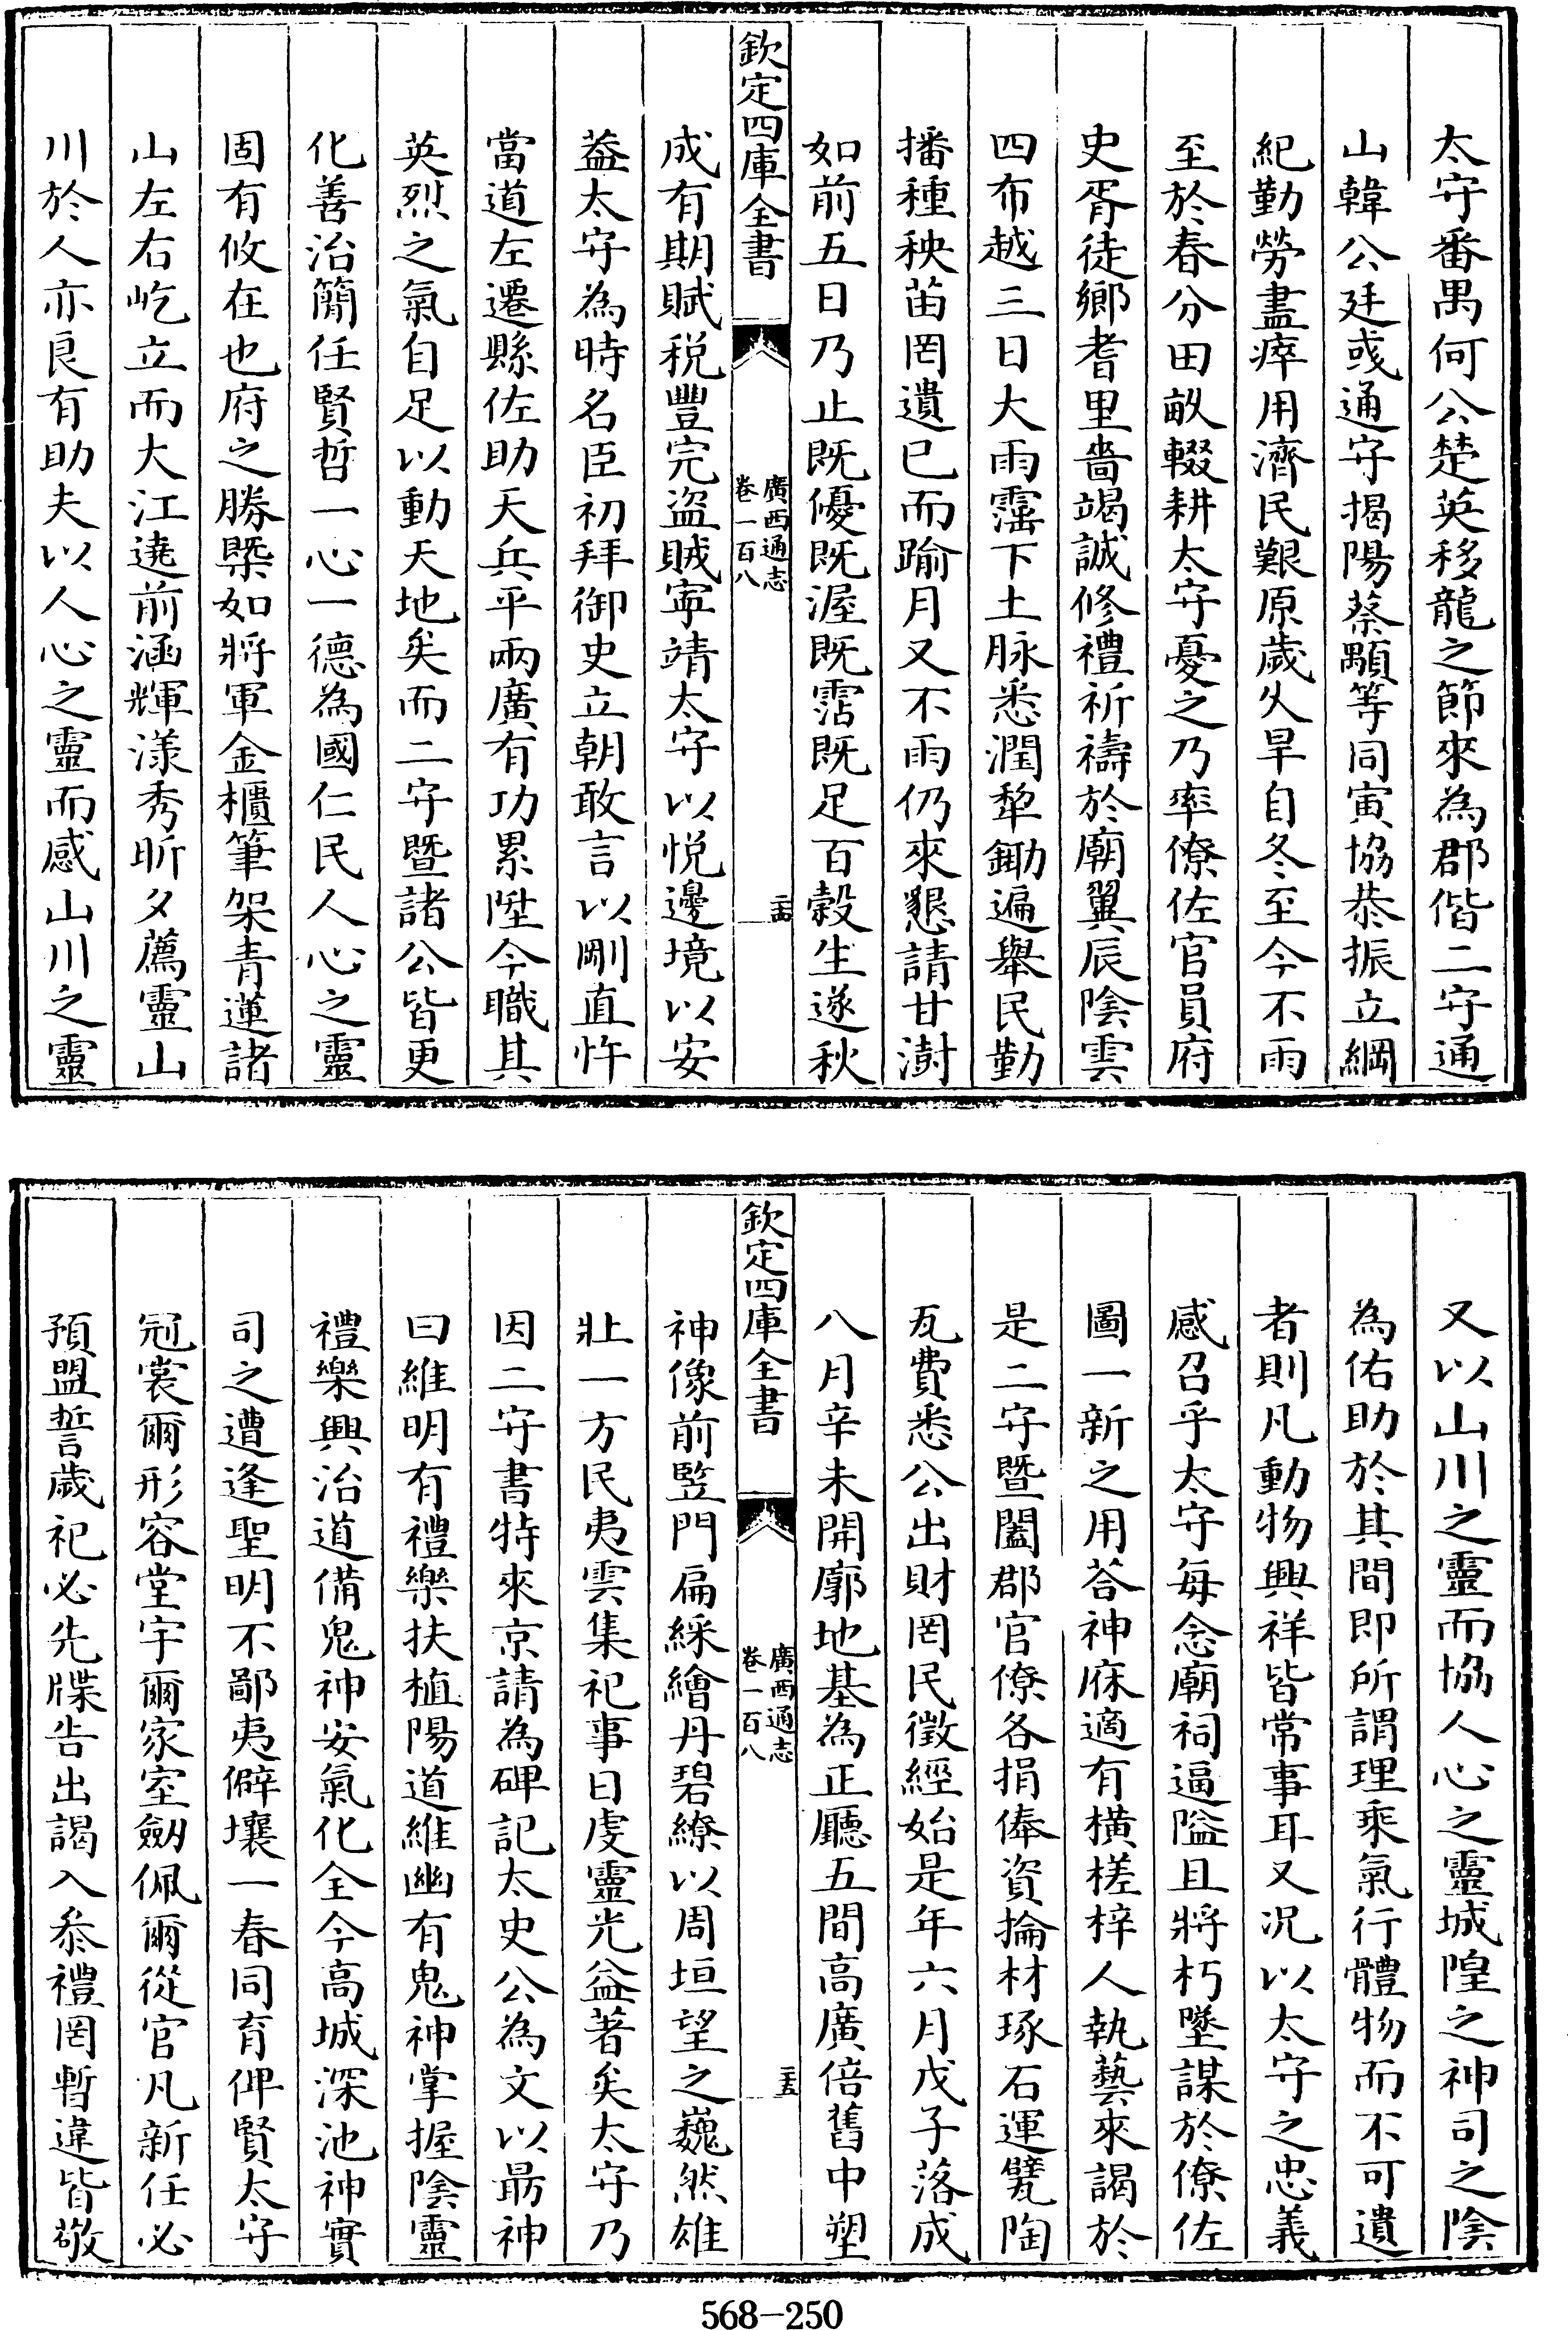 太守番禺何公楚英移龍之節來為郡偕二守通
山韓公廷彧通守揭陽蔡顒等同寅協恭振立綱
紀勤勞盡瘁用濟民艱原歲久旱自冬至今不雨
至於春分田畝輟耕太守憂之乃率僚佐官員府
史胥徒鄉耆里嗇竭誠修禮祈禱於廟翼辰陰雲
四布越三日大雨霑下土脉悉潤犂鋤遍舉民勤
播種秧苗罔遺已而踰月又不雨仍來懇請甘澍
如前五日乃止既優既渥既霑既足百穀生遂秋
欽定四庫全書
廣西通志
卷一百八
二十四
成有期賦稅豐完盜賊寧靖太守以悅邊境以安
葢太守為時名臣初拜御史立朝敢言以剛直忤
當道左遷縣佐助天兵平兩廣有功累陞今職其
英烈之氣自足以動天地矣而二守暨諸公皆更
化善治簡任賢哲一心一德為國仁民人心之靈
固有攸在也府之勝槩如將軍金櫃筆架青蓮諸
山左右屹立而大江遶前涵輝漾秀昕夕薦靈山
川於人亦良有助夫以人心之靈而感山川之靈
又以山川之靈而協人心之靈城隍之神司之陰
為佑助於其間即所謂理乘氣行體物而不可遺
者則凡動物興祥皆常事耳又況以太守之忠義
感召乎太守每念廟祠逼隘且將朽墜謀於僚佐
圖一新之用荅神庥適有橫槎梓人執藝來謁於
是二守暨闔郡官僚各捐俸資掄材琢石運甓陶
瓦費悉公出財罔民徵經始是年六月戊子落成
八月辛未開廓地基為正廳五間高廣倍舊中塑
欽定四庫全書
廣西通志
卷一百八
二十五
神像前竪門扁綵繪丹碧繚以周垣望之巍然雄
壯一方民夷雲集祀事日虔靈光益著矣太守乃
因二守書特來京請為碑記太史公為文以勗神
曰維明有禮樂扶植陽道維幽有鬼神掌握陰靈
禮樂興治道備鬼神安氣化全今高城深池神實
司之遭逢聖明不鄙夷僻壤一春同育俾賢太守
冠裳爾形容堂宇爾家室劔佩爾從官凡新任必
預盟誓歲祀必先牒告出謁入叅禮罔暫違皆敬
568-250